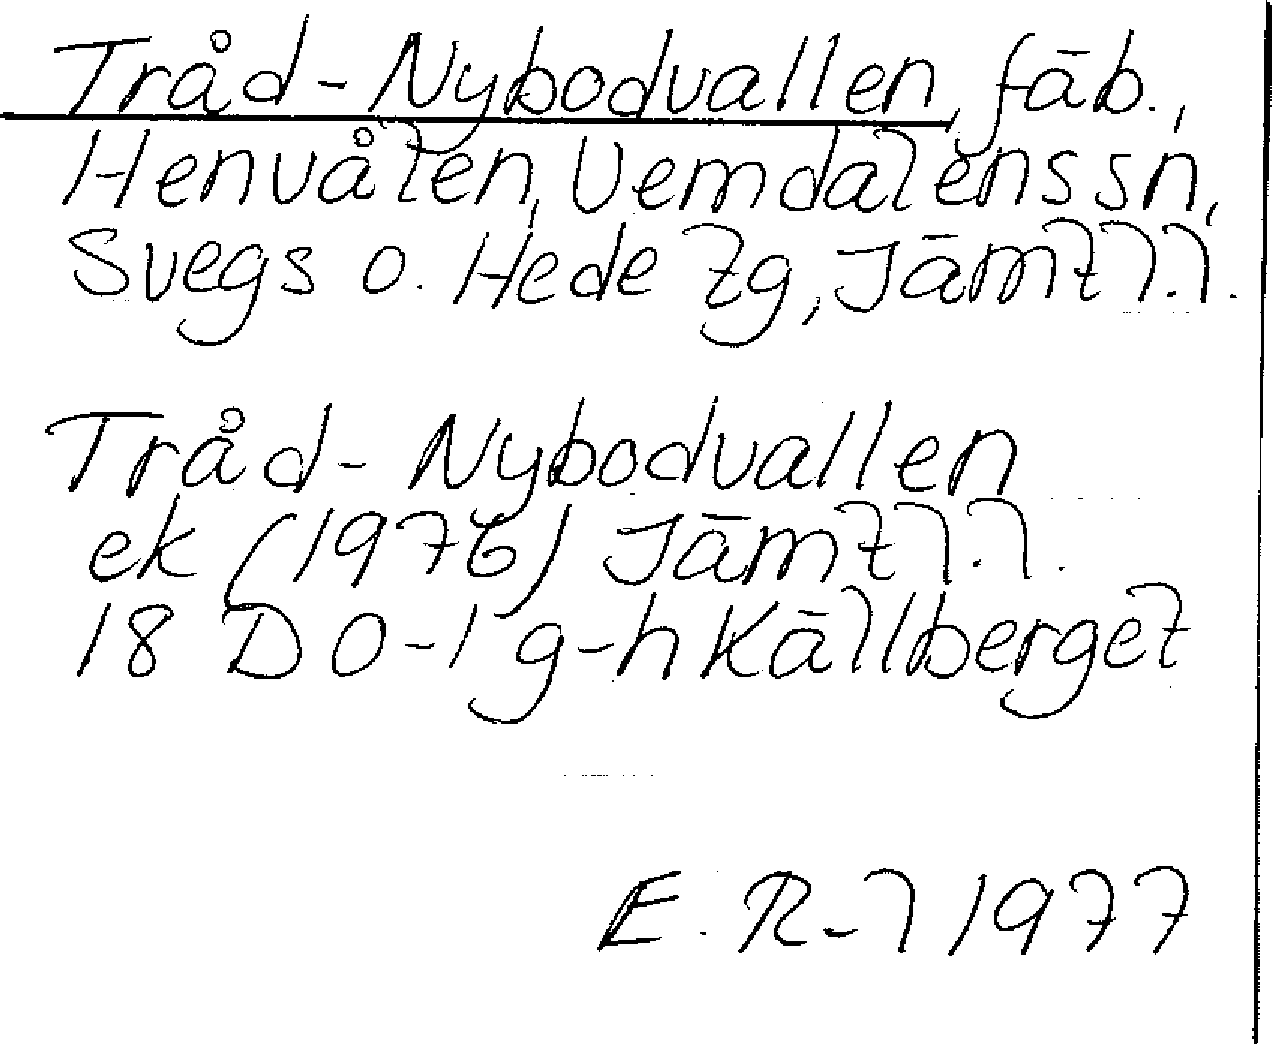 Tråd-Nybodvallen, fäb.,
Henvålen, Vemdalens sn,
Svegs o. Hede tg, Jämtl.l.
Tråd-Nybodvallen
ek (1976) Jämtl.l.
18 D 0-1 g-h Källberget
E. R-l 1977